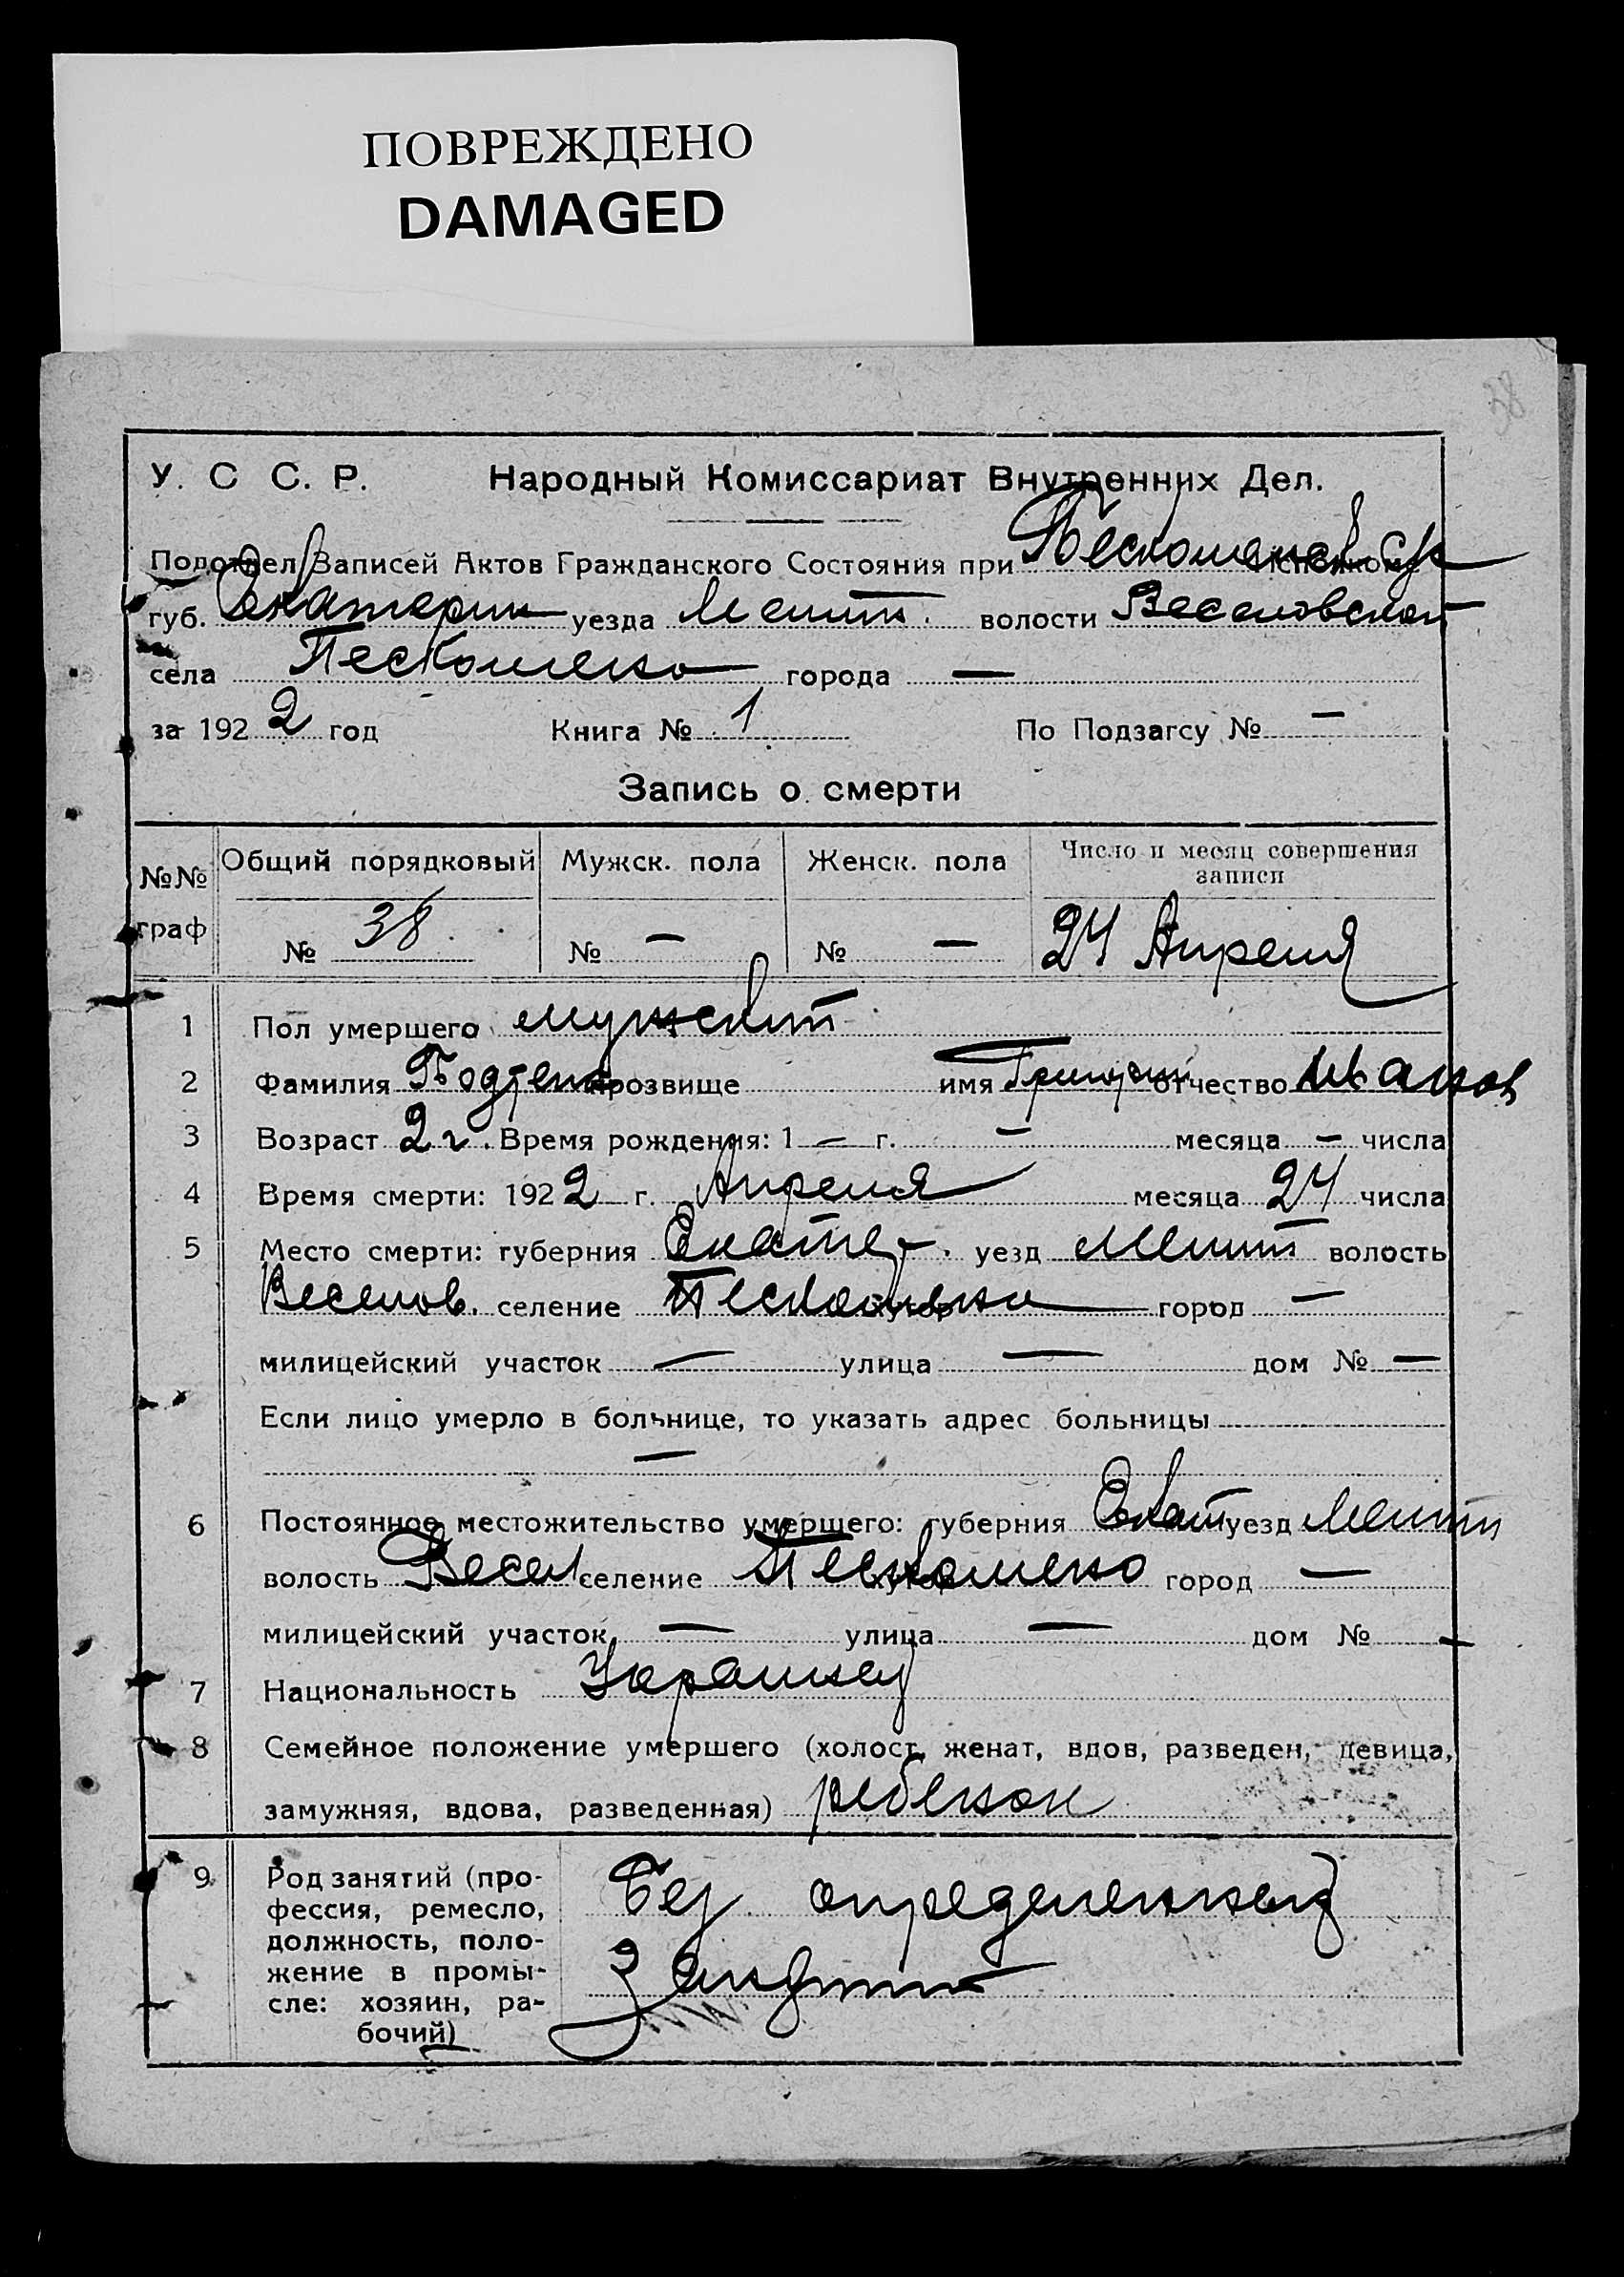 ПОВРЕЖДЕНО
DAMAGED
38
У. С С. Р. Народный Комиссариат Внутренних Дел.
Подотдел Записей Актов Гражданского Состояния при
губ. Екатерин уезда Мелит. волости Веселовской
села Пескошено города —
за 1922 год Книга № 1 По Подзагсу № —
Запись о смерти
№№ граф Общий порядковый № 38 Мужск. пола № — Женск. пола № — Число и месяц совершения записи 24 Апреля
1 Пол умершего мужской
2 Фамилия прозвище имя Григорий отчество Иванов
3 Возраст 2 г. Время рождения: 1 — г. — месяца — числа
4 Время смерти: 1922 г. Апреля месяца 24 числа
5 Место смерти: губерния Екатер. уезд Мелит волость
Веселов. селение Пескошено город —
милицейский участок — улица — дом № —
Если лицо умерло в больнице, то указать адрес больницы
—
6 Постоянное местожительство умершего: губерния Екат уезд Мелит
волость Весел селение Пескошено город —
милицейский участок — улица — дом № —
7 Национальность Украинец
8 Семейное положение умершего (холост, женат, вдов, разведен, девица,
замужняя, вдова, разведенная) ребенок
9 Род занятий (про-
фессия, ремесло,
должность, поло-
жение в промы-
сле: хозяин, ра-
бочий)
Без определенных
занятий